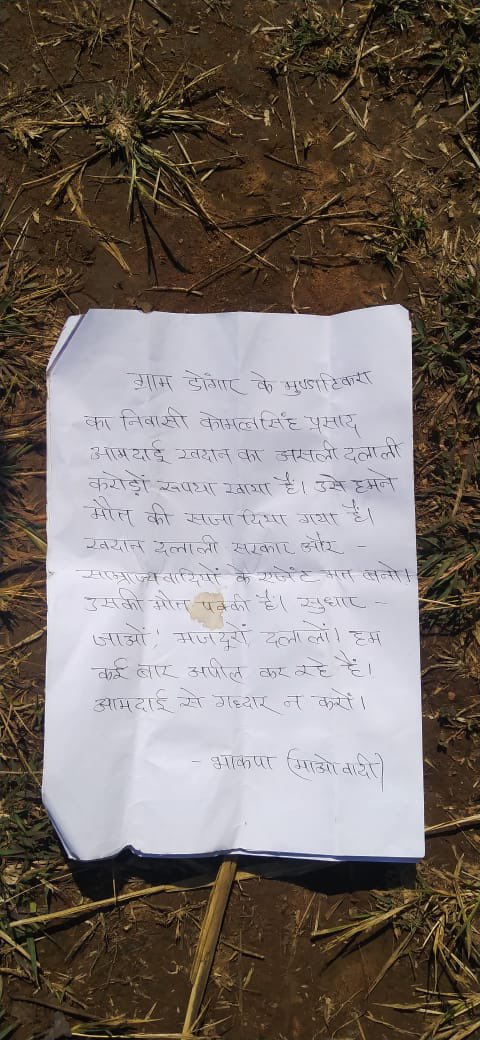 ग्राम डोंगार के मुण्डाटिकरा
का निवासी कोमलसिंह प्रसाद
आमदाई खदान का असली दलाली
करोड़ों रूपया खाया है। उसे हमने
मौत की सजा दिया गया है।
खदान दलाली सरकार और -
साम्राज्यवादियों के एजेंट मत बनो।
उसकी मौत पक्का है। सुधार -
जाओं! मजदूरों, दलालों। हम
कई बार अपील कर रहे हैं।
आमदाई से गद्दार न करों।
- भाकपा (माओवादी)